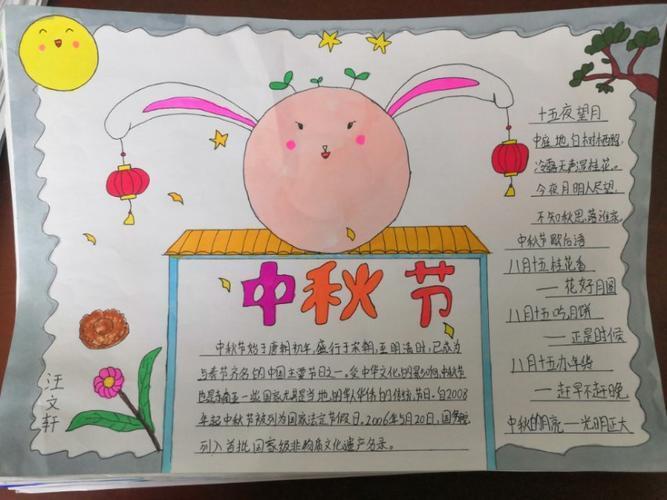 中秋节
中秋节始于唐朝初年，盛行于宋朝，至明清时，已成为
与春节齐名的中国主要节日之一。受中华文化的影响，中秋节
也是东南亚一些国家尤其是当地的华人华侨的传统节日。自2008
年起中秋节被列为国家法定节假日。2006年5月20日，国务院
列入首批国家级非物质文化遗产名录。
十五夜望月
中庭地白树栖鸦，
冷露无声湿桂花。
今夜月明人尽望，
不知秋思落谁家
中秋节歇后语
八月十五桂花香
——花好月圆
八月十五吃月饼
——正是时候
八月十五办年货
——赶早不赶晚
中秋的月亮——光明正大
汪文轩